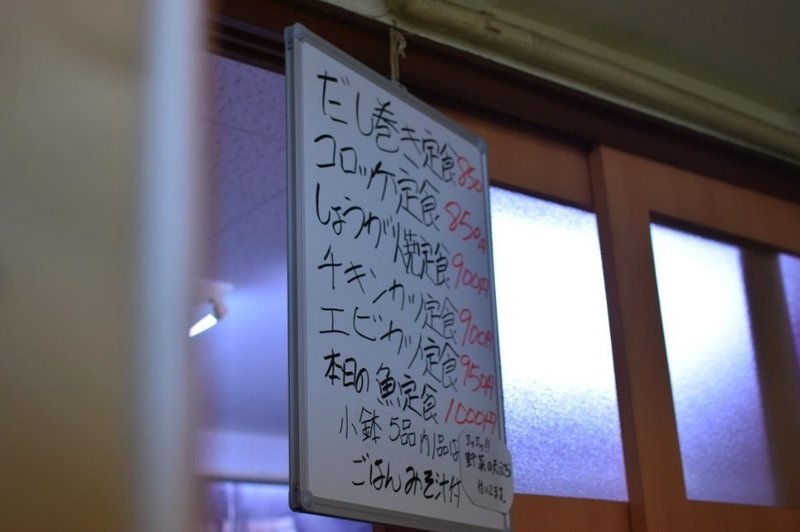 だし巻き定食850
コロッケ定食850円
しょうが焼定食900円
チキンカツ定食900円
エビカツ定食950円
本日の魚定食1000円
小鉢5品 内1品は
野菜の天ぷら
ごはん みそ汁付